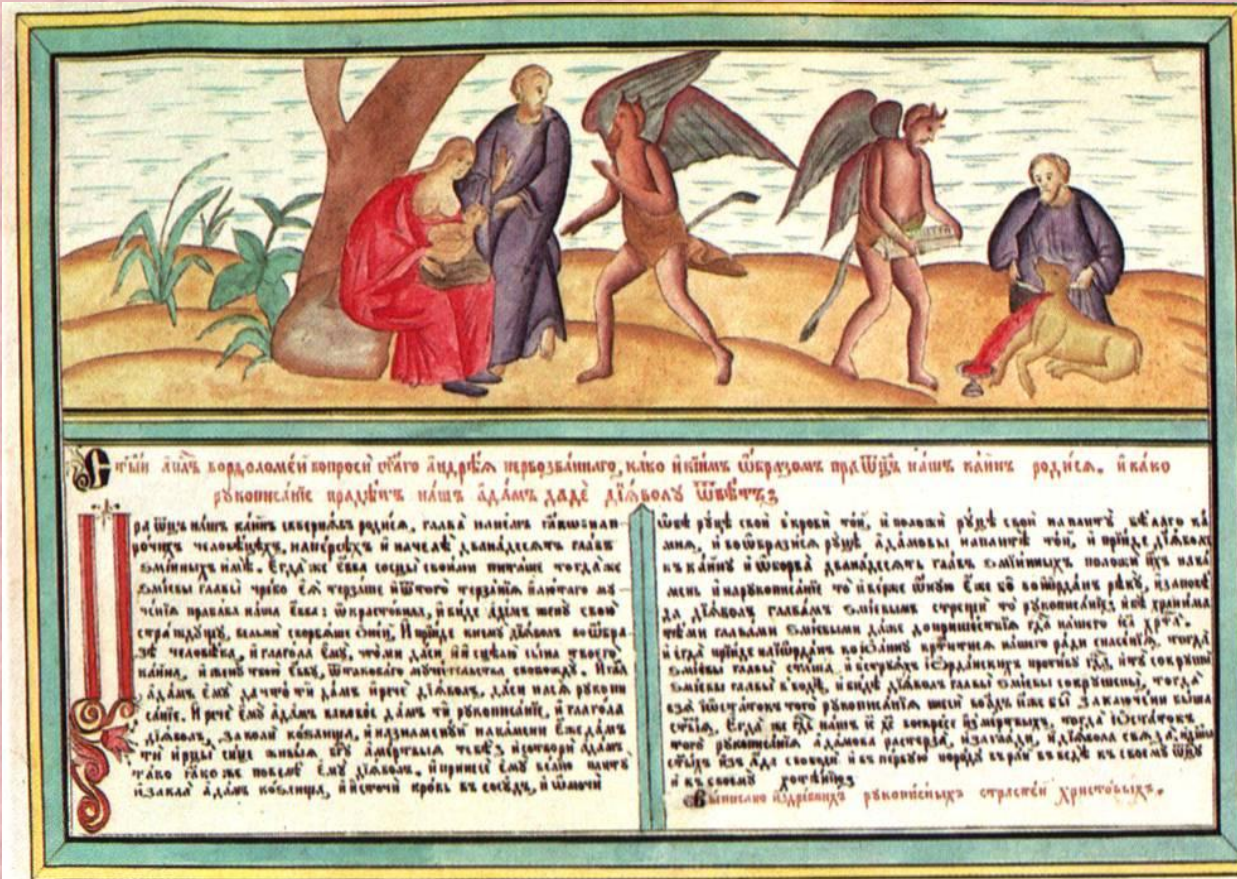 Ст҃ый ап҃лъ вордоломе́й вопроси́ ст҃а́го андре́я перво́званнаго, ка́ко и҆ ки́мъ ѡ҆́бразомъ пра ѿц҃ъ на́шъ ка́инъ роди́ся. и҆ ка́ко
рукописа́нїе пра́дѣдъ на́шъ ада́мъ дадѐ дїа́волу ѿвѣ́тъ
Пра ѿц҃ъ на́шъ ка́инъ скверня́въ роди́ся, глава̀ на не́мъ ꙗ҆́кѡ и҆ на п
рочихъ человѣ́цѣхъ, на пе́рсѣхъ и҆ на челѣ̀ двана́десять гла́въ
ѕмїи́ныхъ и҆мѣ̀. Е҆гда́ же е҆́вва сосцы̀ свои́ми пита́ше тогда́ же
ѕмїе́вы главы̀ чре́во е҆я̀ терза́ше и҆ ѿ того̀ терза́нїя и҆ лю́таго му
че́нїя праба́ба на́ша е҆́вва: ѡ҆красто́вила, и҆ ви́де ада́мъ жену̀ свою̀
стра́ждущу, вельмѝ скорбя́ше ѡ҆ не́й, И҆ прїи́де к нему̀ дїа́волъ во ѡ҆́бра
зѣ человѣ́ка, и҆ глаго́ла е҆му̀, что́ ми да́си и҆ а҆́зъ и҆сцелю̀ сы́на твоего̀
ка́ина, и҆ жену̀ твою̀ е҆́вву, ѿ такова́го мучи́телства свобожду̀. И҆ гл҃а
ада́мъ е҆му̀ да что́ ти да́мъ и҆ речѐ дїа́волъ, да́си на ся̀ рукопи
са́нїе. И҆ речѐ е҆му̀ ада́мъ каково́е да́мъ тѝ рукописа́нїе, и҆ глаго́ла
дїа́волъ, заколѝ ко́злища, и҆ назна́менуй на ка́мени е҆же да́мъ
тѝ и҆ рцы̀ си́це живы́я бг҃у а҆ ме́ртвыя тебѣ̀ и҆ сотворѝ ада́мъ
та́ко ꙗ҆́ко же повелѣ̀ е҆му̀ дїа́волъ. и҆ принесѐ е҆му̀ ве́лию плиту̀
и҆ закла̀ ада́мъ ко́злища, и҆ и҆сточѝ кро́вь въ сосу́дъ, и҆ ѡ҆мочѝ
ѻ҆́бѣ ру́цѣ своѝ в кро́ви то́й, и҆ положѝ ру́цѣ своѝ на плиту̀ бѣ́лаго ка́
мня, и҆ воѡбрази́ся ру́цѣ ада́мовы на плитѣ̀ то́й, и҆ прїи́де дїа́волъ
къ ка́ину и҆ ѡ҆борва̀ двана́десять гла́въ ѕмїи́нныхъ положѝ и҆́хъ на ка́
мень и҆ на рукописа́нїе то̀ и҆ ве́рже ѻ҆́ную во і҆ѻрда́нъ рѣ́ку, и҆ заповѣ́
да дїа́волъ глава́мъ ѕмїе́вымъ стрещѝ то̀ рукописа́нїе, и҆ бѣ̀ храни́ма
тѣ́ми глава́ми ѕмїе́выми да́же до прише́ствїя гд҃а на́шего і҆с҃а хр҃та̀.
и҆ е҆гда̀ прїи́де на і҆ѻрда́нъ ко і҆ѻа́нну крⷭ҇ти́тися на́шего ра́ди спасе́нїя, тогда̀
ѕмїе́вы главы̀ ста́ша, в стру́яхъ і҆ѻрда́нскихъ проти́ву гд҃а, и҆ ту̀ сокрушѝ
ѕмїе́вы главы̀ в водѣ̀, и҆ ви́дѣ дїа́волъ главы̀ ѕмїе́вы сокруше́ны, тогда̀
взя̀ и҆ѡста́токъ того̀ рукописа́нїя во а҆́дъ и҆дѣ́же бѣ́ша заключе́ни
ст҃ї́я, Е҆гда́ же гд҃ь на́шъ і҆с҃ хр҃ воскре́се и҆з ме́ртвыхъ, тогда̀ і҆ѡста́токъ,
того̀ рукописа́нїя ада́мова растерза̀, и҆ загла́ди, и҆ дїа́вола связа̀,
ст҃ы́хъ и҆з а҆́да свободѝ и҆ въ пе́рвую поро́ду введѐ къ своему̀ ѻ҆ц҃у̀
и҆ къ своему̀ хотѣ́нїю
Вы́писано и҆з дре́внихъ рукопи́сныхъ страсте́й христо́выхъ.